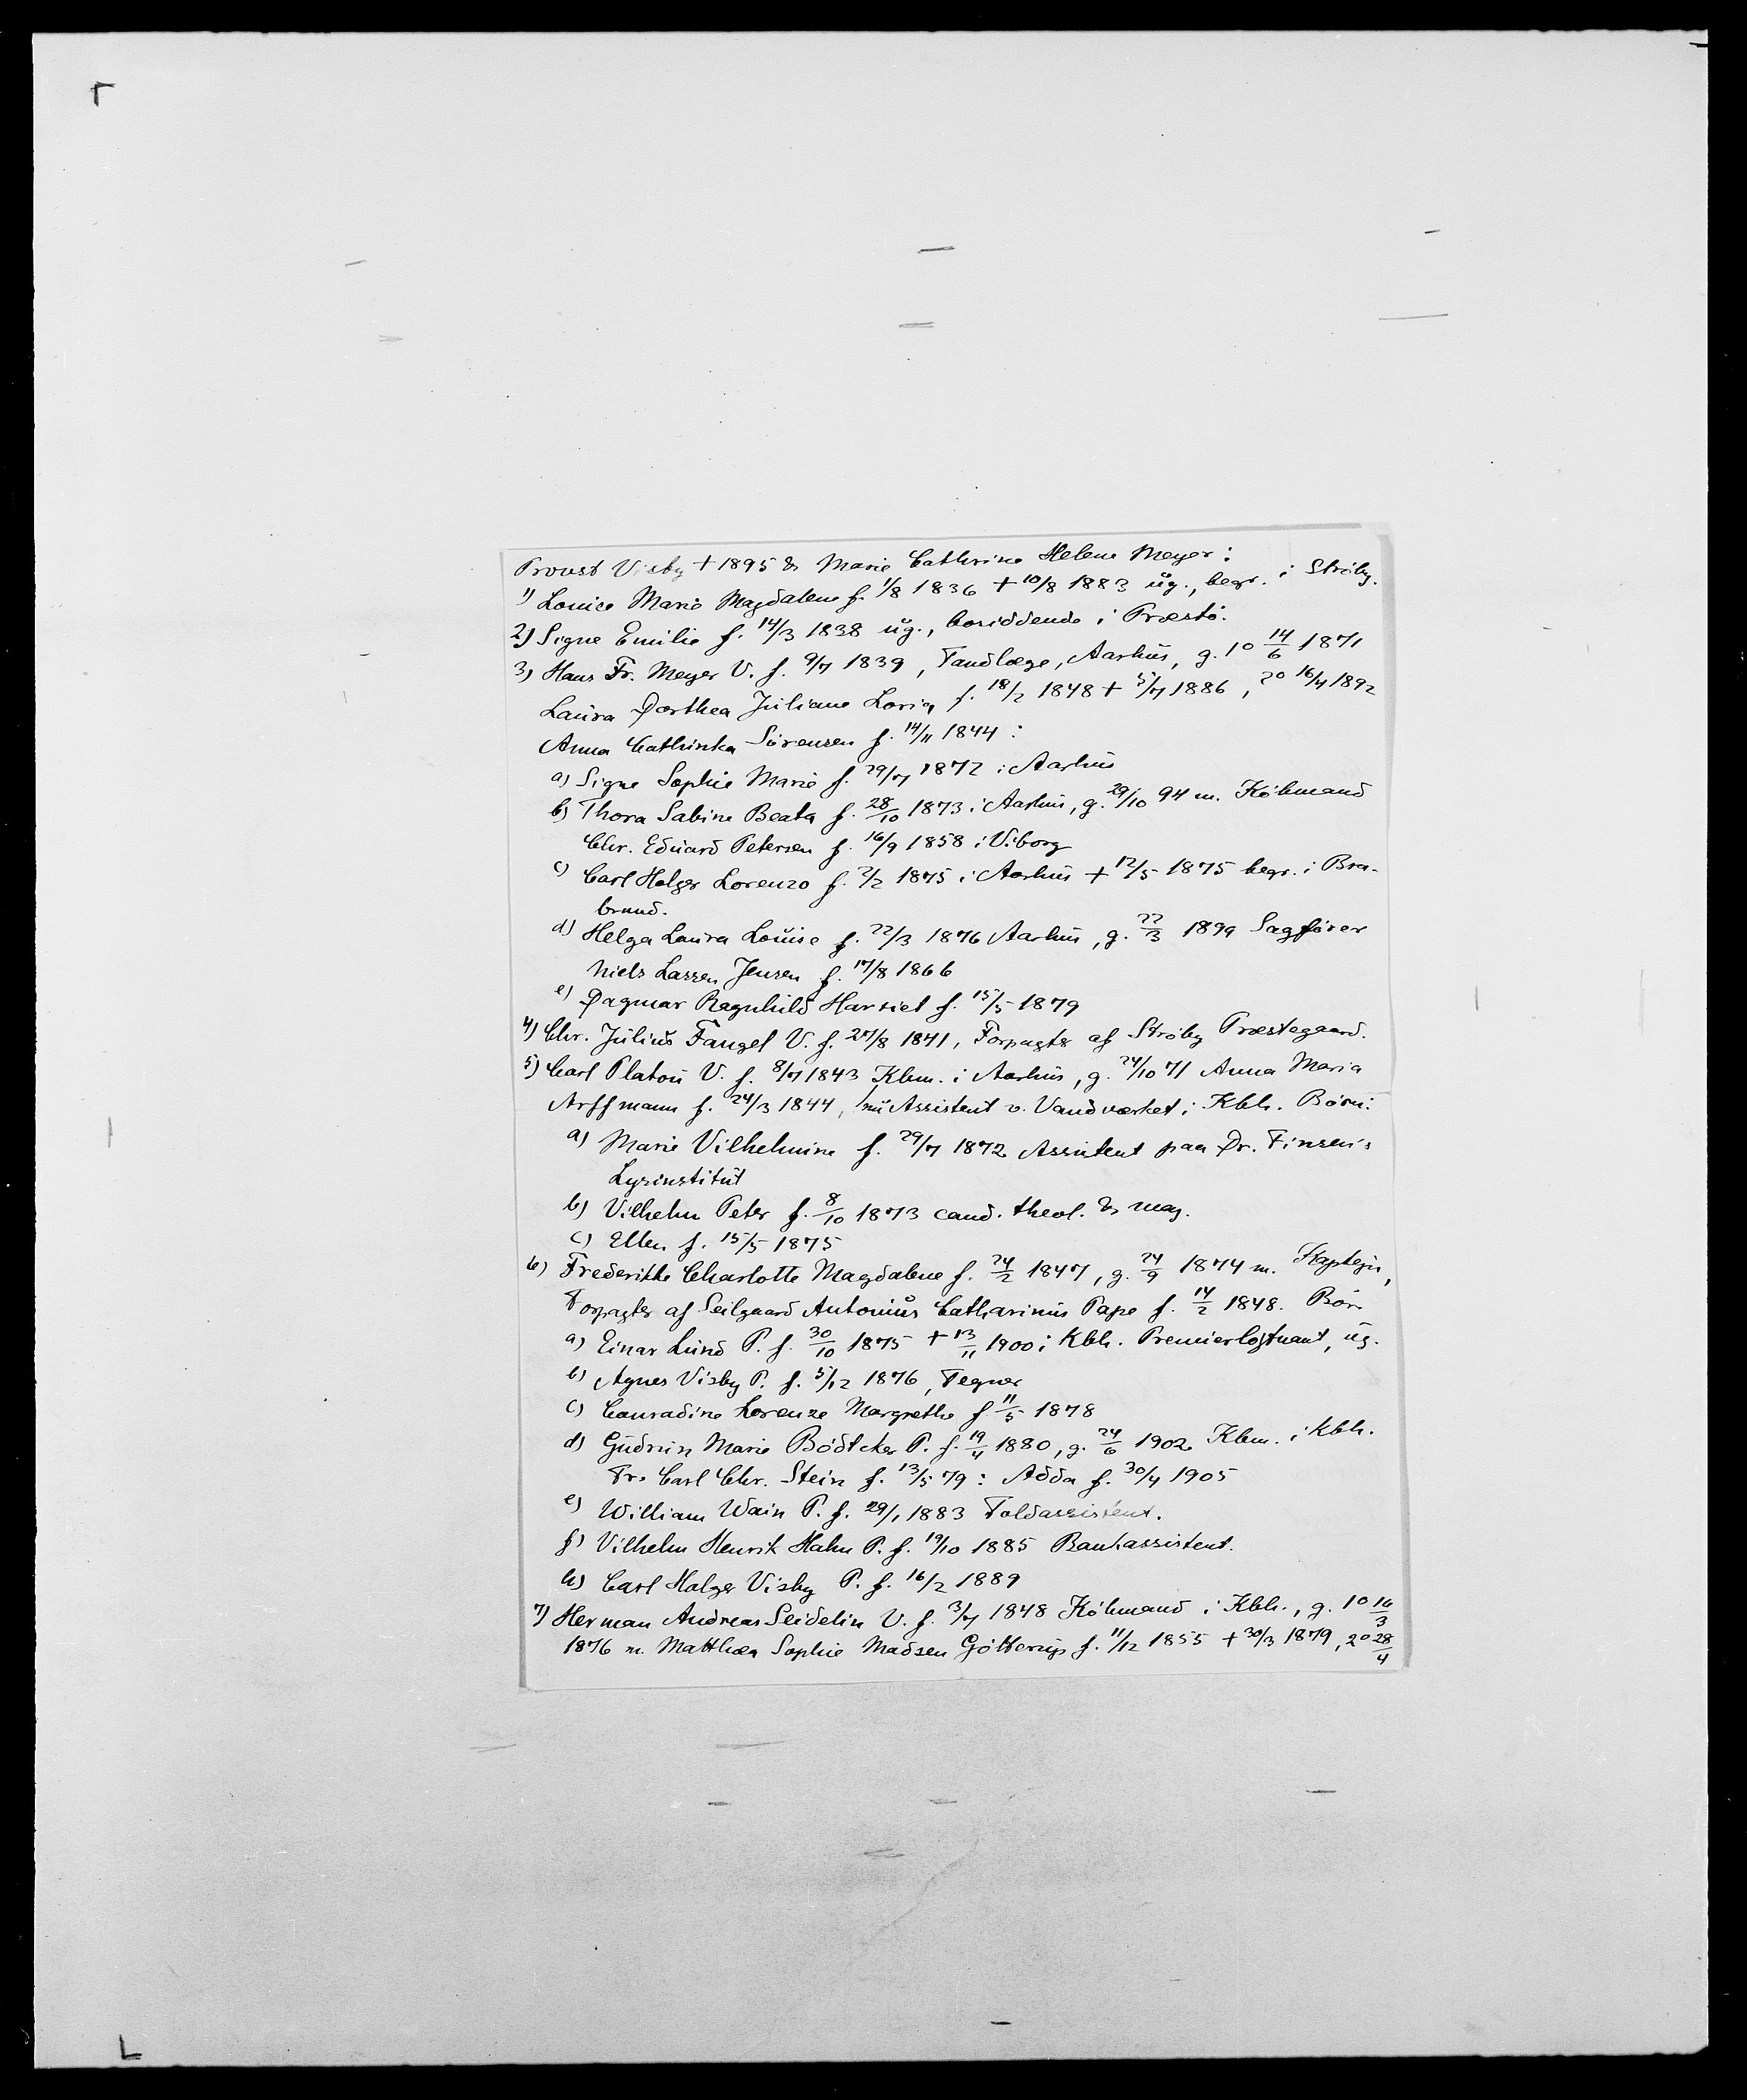 Provst Visby + 1895 & Marie Cathrine Helene Meyer:
1) Louise Marie Magdalene f. 1/8 1836 + 10/8 1883 ug., begr. i Ströby.
2) Signe Emilie f. 14/3 1838 ug., bosiddende i Præstö.
3) Hans Fr. Meyer V. f. 9/7 1839, Tandlæge, Aarhus, g. 1° 14/6 1871
Laura Dorthea Juliane Loria f. 18/2 1848 + 5/7 1886, 2° 16/4 1892
Anna Cathinka Sörensen f. 14/11 1844:
a) Signe Sophie Marie f. 29/7 1872 i Aarhus
b) Thora Sabine Beata f. 28/10 1873 i Aarhus, g. 29/10 94 m. Köbmand
Chr. Eduard Petersen f. 16/9 1858 i Viborg
c) Carl Holger Lorenzo f. 2/2 1875 i Aarhus + 12/5 1875 begr. i Bra-
brand.
d) Helga Laura Louise f. 22/3 1876 Aarhus, g. 22/3 1899 Sagförer
Niels Lassen Jensen f. 17/8 1866
e) Dagmar Ragnhild Harriet f. 15/5 1879
4) Chr. Julius Fangel V. f. 27/8 1841, Forpagter af Ströby Præstegaard.
5) Carl Platou V. f. 8/7 1843 Kbm. i Aarhus, g. 24/10 71 Anna Maria
Arffmann f. 24/3 1844, nu Assistent v. Vandværket i Kbh. Börn:
a) Marie Vilhelmine f. 29/7 1872 Assistent paa Dr. Finsen's
Lysinstitut
b) Vilhelm Peter f. 8/10 1873 cand. theol. & mag.
c) Ellen f. 15/5 1875
6) Frederikke Charlotte Magdalene f. 24/2 1847, g. 24/9 1874 m. Kaptejn,
Forpagter af Seilgaard Antonius Catharinus Pape f. 14/2 1848. Börn
a) Einar Lund P. f. 30/10 1875 + 13/11 1900 i Kbh. Premierlöjtnant, ug.
b) Agnes Visby P. f. 5/12 1876, Tegner
c) Conradine Lorenze Margrethe f. 11/5 1878
d) Gudrun Marie Bödtcker P. f. 19/4 1880, g. 24/6 1902 Kbm. i Kbh.
Fr. Carl Chr. Stein f. 13/5 79: Adda f. 30/4 1905
e) William Wain P. f. 29/1 1883 Toldassistent.
f) Vilhelm Henrik Hahn P. f. 19/10 1885 Bankassistent.
h) Carl Holger Visby P. f. 16/2 1889
7) Herman Andreas Seidelin V. f. 3/7 1848 Köbmand i Kbh., g. 1° 16/3
1876 m. Matthæa Sophie Madsen Götterup f. 11/12 1855 + 30/3 1879, 2° 28/4